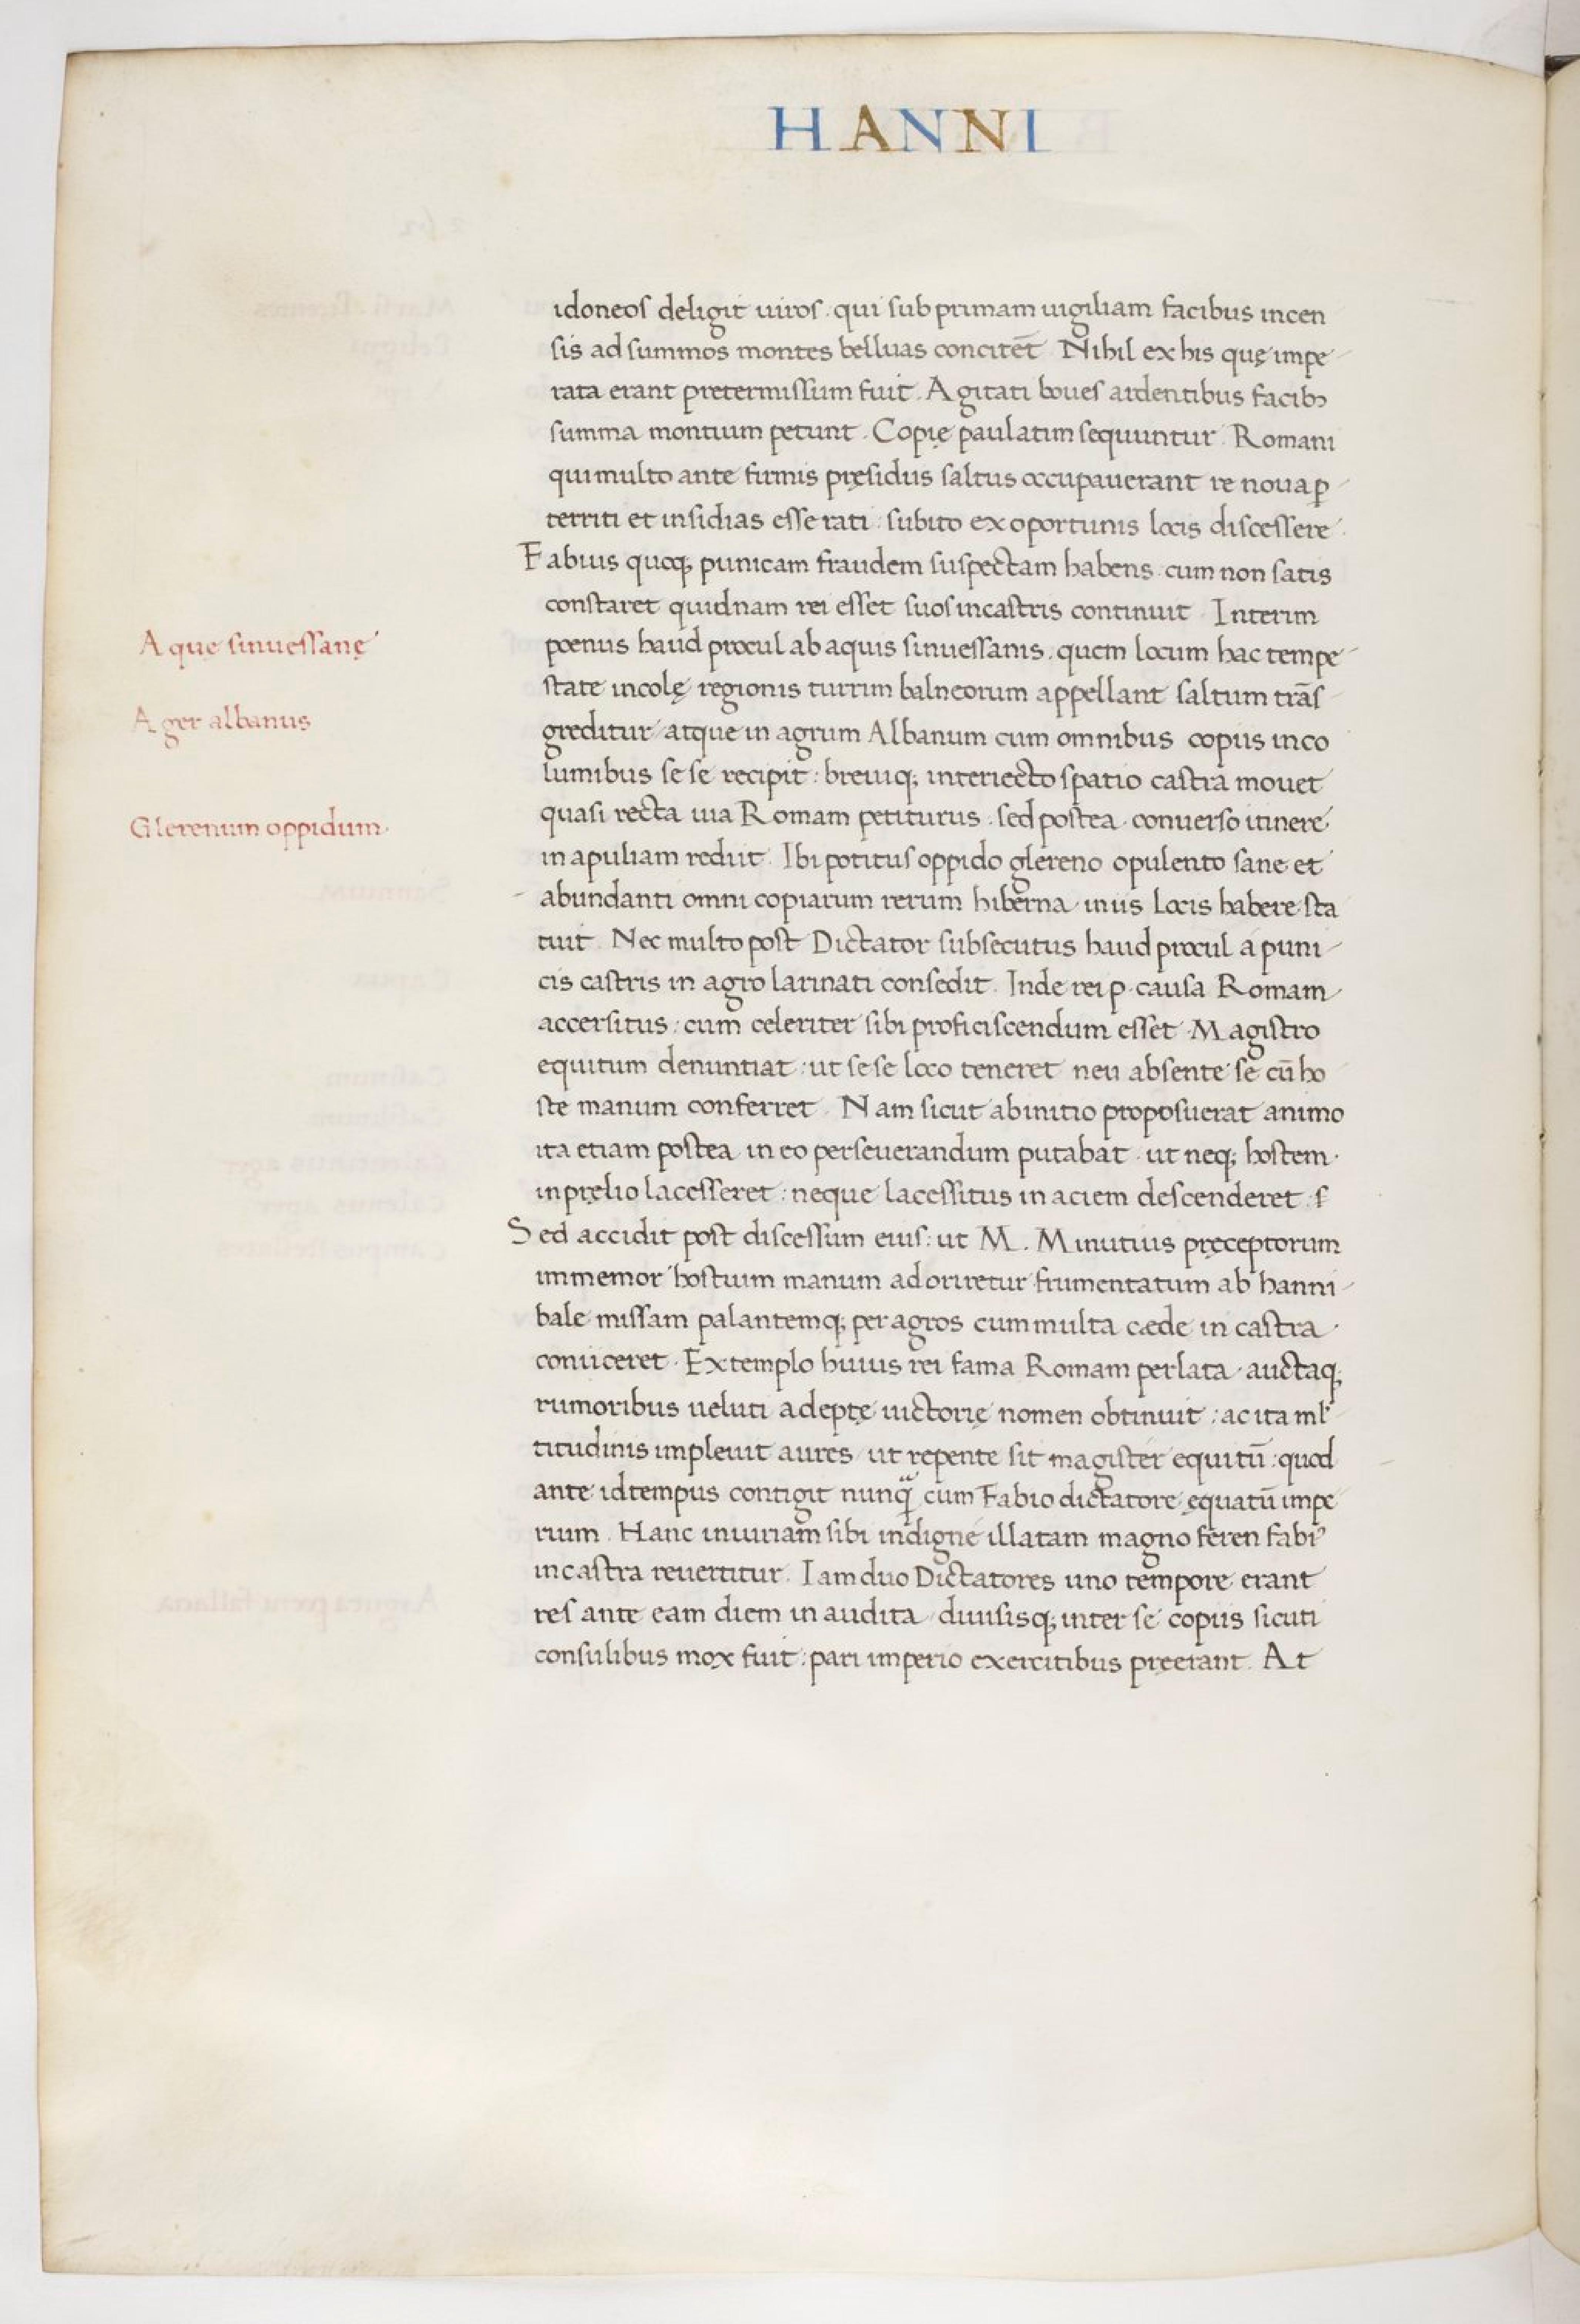 HANNI
idoneos deligit uiros. qui sub primam uigiliam facibus incen
sis ad summos montes belluas concitēt. Nihil ex his quę impe
rata erant pretermissum fuit. Agitati boues ardentibus facibꝫ
summa montium petunt. Copię paulatim sequuntur. Romani
qui multo ante firmis pręsidiis saltus occupauerant re noua ꝑ
territi et insidias esse rati: subito ex oportunis locis discessere.
Fabius quoqꝫ punicam fraudem suspectam habens. cum non satis
constaret quidnam rei esset suos in castris continuit. Interim
Aque sinuessanę
poenus haud procul ab aquis sinuessanis. quem locum hac tempe
state incolę regionis turrim balneorum appellant saltum trās
Ager albanus
greditur atque in agrum Albanum cum omnibus copiis inco
lumibus se se recipit: breuiqꝫ interiecto spatio castra mouet
Glerenum oppidum.
quasi recta uia Romam petiturus. sed postea conuerso itinere
in apuliam rediit. Ibi potitus oppido glereno opulento sane et
abundanti omni copiarum rerum hiberna in iis locis habere sta
tuit. Nec multo post Dictator subsecutus haud procul a puni
cis castris in agro larinati consedit. Inde rei p. causa Romam
accersitus: cum celeriter sibi proficiscendum esset. Magistro
equitum denuntiat: ut se se loco teneret neu absente se cū ho
ste manum conferret. Nam sicut ab initio proposuerat animo
ita etiam postea in eo perseuerandum putabat. ut neqꝫ hostem.
in pręlio lacesseret: neque lacessitus in aciem descenderet. s
Sed accidit post discessum eius: ut M. Minutius pręceptorum
immemor hostium manum adoriretur frumentatum ab hanni
bale missam palantemqꝫ per agros cum multa cæde in castra.
coniiceret. Extemplo huius rei fama Romam perlata. auctaqꝫ
rumoribus ueluti adeptę uictorię nomen obtinuit: ac ita ml̓
titudinis impleuit aures ut repente sit magister equitū: quod
ante id tempus contigit nunq̃ cum Fabio dictatore ęquatū impe
rium. Hanc iniuriam sibi indigne illatam magno feren fabiꝰ
in castra reuertitur. Iam duo Dictatores uno tempore erant
res ante eam diem in audita diuisisqꝫ inter se copiis sicuti
consulibus mox fuit: pari imperio exercitibus pręerant. At